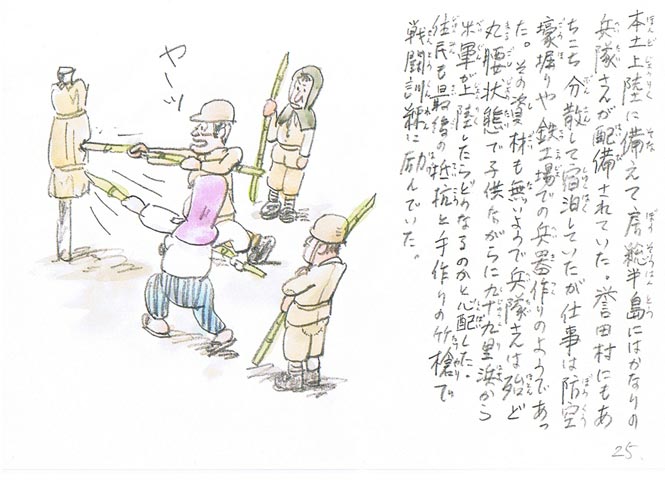 本土上陸に備えて房総半島にはかなりの
兵隊さんが配備されていた。誉田村にもあ
ちこち分散して宿泊していたが仕事は防空
壕堀りや鉄工場での兵器作りのようであっ
た。その資材も無いようで兵隊さんは殆ど
丸腰状態で子供ながらに九十九里浜から
米軍が上陸したらどうなるのかと心配した。
住民も最後の抵抗と手作りの竹槍で
戦闘訓練に励んでいた。
やーッ
25.